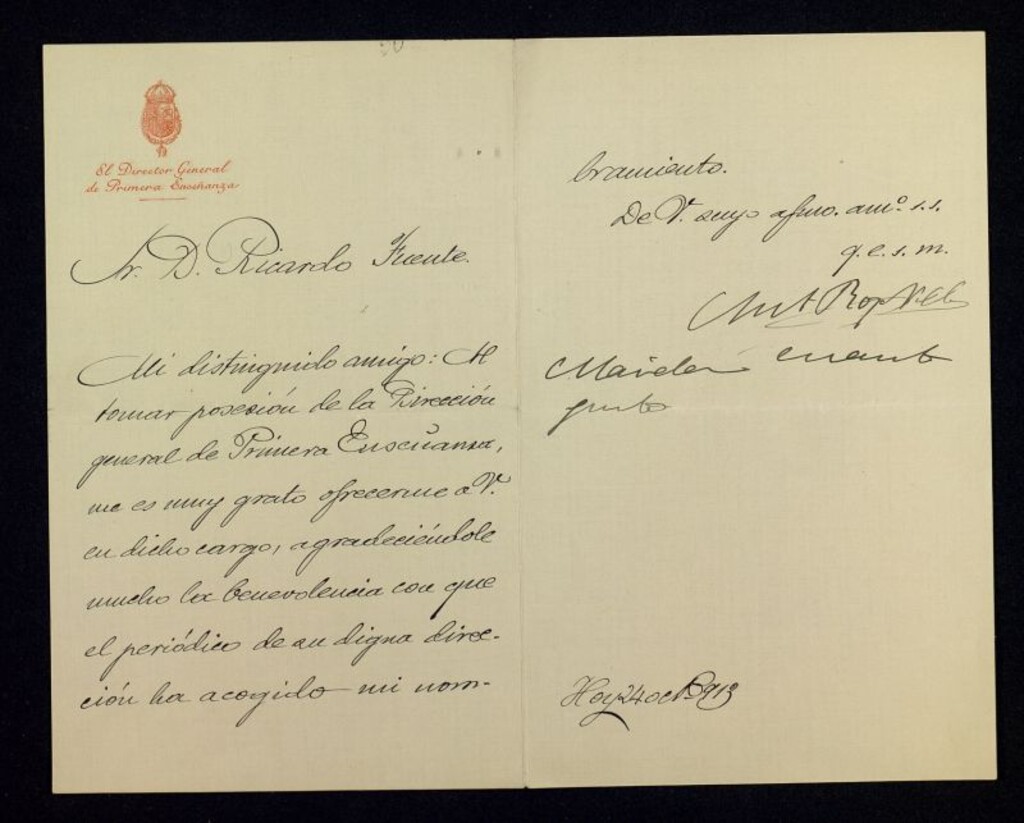 El Director General
de Primera Enseñanza
Sr. D. Ricardo Fuente.
Mi distinguido amigo: Al
tomar posesión de la Dirección
general de Primera Enseñanza,
me es muy grato ofrecerme a V.
en dicho cargo, agradeciéndole
mucho la benevolencia con que
el periódico de su digna direc-
ción ha acogido mi nom-
bramiento.
De V. suyo afmo. amº. s.s.
q.e.s.m.
Mande cuanto
guste
Hoy 24 oct 1913